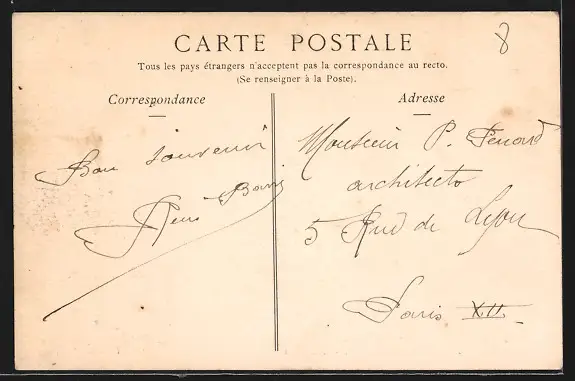 8
CARTE POSTALE
Tous les pays étrangers n'acceptent pas la correspondance au recto.
(Se renseigner à la Poste).
Correspondance
Bon souvenir
Adresse
Monsieur P. Penard
architecte
5 Rue de Lyon
Paris XII